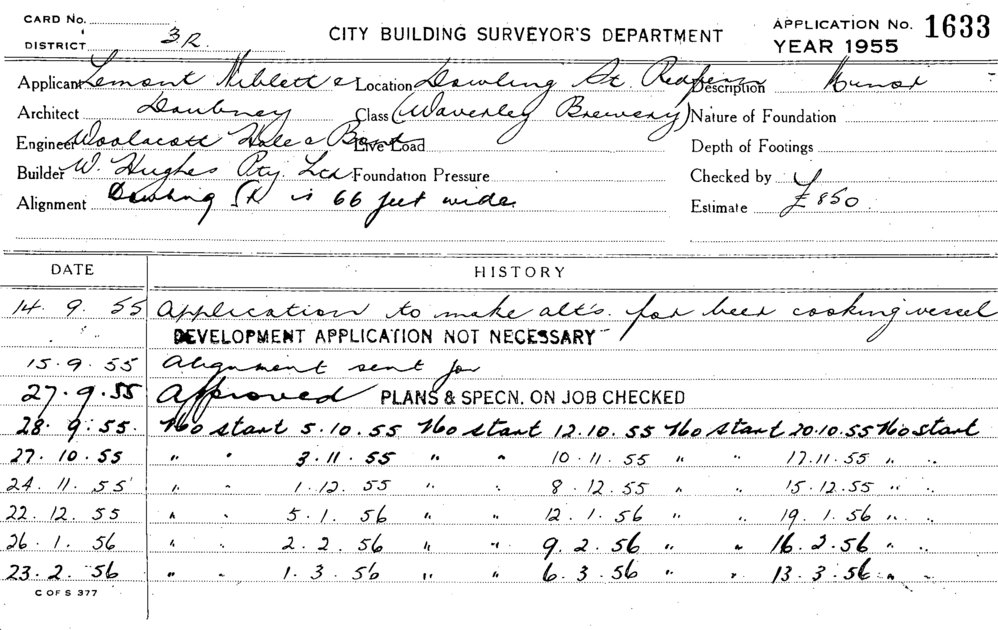 CARD No.
DISTRICT 3R.
CITY BUILDING SURVEYOR'S DEPARTMENT
APPLICATION No. 1633
YEAR 1955
Applicant Lemont Niblett & Location Dowling St. Redfern Description Minor
Architect Daubney Class (Waverley Brewery) Nature of Foundation
Engineer Woolacott Hale & Live Load Depth of Footings
Builder W. Hughes Pty. Ltd Foundation Pressure Checked by
Alignment Dowling St is 66 feet wide. Estimate £850.
DATE HISTORY
14. 9. 55 Application to make alt's. for beer cooking vessel
DEVELOPMENT APPLICATION NOT NECESSARY
15.9.55 Alignment sent for
27.9.55 Approved PLANS & SPECN. ON JOB CHECKED
28.9.55. No start 5.10.55 No start 12.10.55 No start 20.10.55 No start
27.10.55 " " 3.11.55 " " 10.11.55 " " 17.11.55 " "
24.11.55 " " 1.12.55 " " 8.12.55 " " 15.12.55 " "
22.12.55 " " 5.1.56 " " 12.1.56 " " 19.1.56 " "
26.1.56 " " 2.2.56 " " 9.2.56 " " 16.2.56 " "
23.2.56 " " 1.3.56 " " 6.3.56 " " 13.3.56 " "
C OF S 377